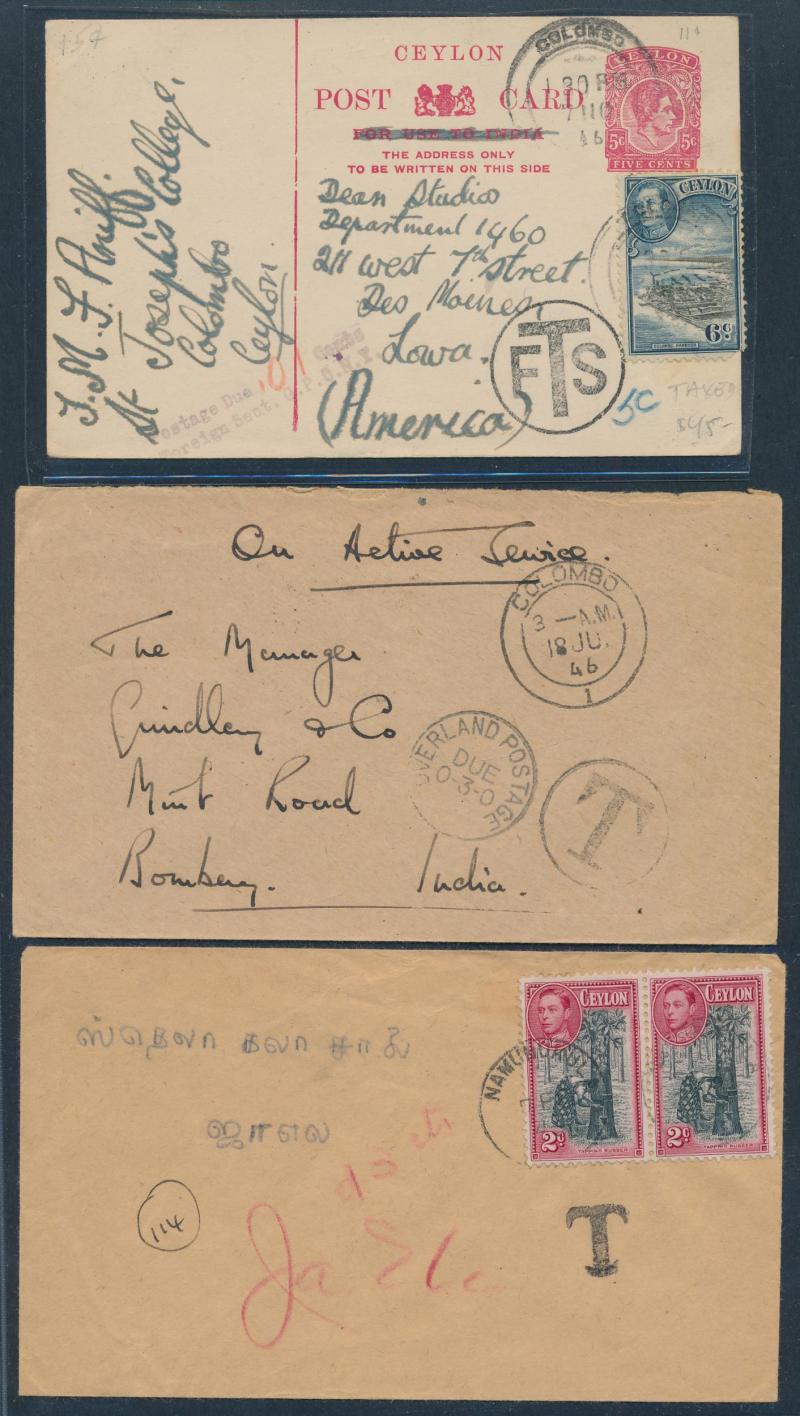 CEYLON
POST CARD
FOR USE TO INDIA
THE ADDRESS ONLY
TO BE WRITTEN ON THIS SIDE
COLOMBO
46
CEYLON
5c 5c
FIVE CENTS
CEYLON
6c
COLOMBO HARBOUR
J. M. F. Aniff.
St Joseph's College,
Colombo
Ceylon
Dean Studios
Department 1460
211 West 7th Street.
Des Moines,
Iowa.
(America)
Postage Due .01 Cents
Foreign Sect. G.P.O. N.Y.
FTS
5c
TAXED
$45-
On Active Service.
COLOMBO
3 - A.M.
18 JU.
46
1
The Manager
Grindlay & Co
Mint Road
Bombay. India.
OVERLAND POSTAGE
DUE
0-3-0
T
CEYLON
2c
TAPPING RUBBER
CEYLON
2c
TAPPING RUBBER
ஸ்தெலா கலா சாலை
ஜாஎல
114
Ja Ela
T